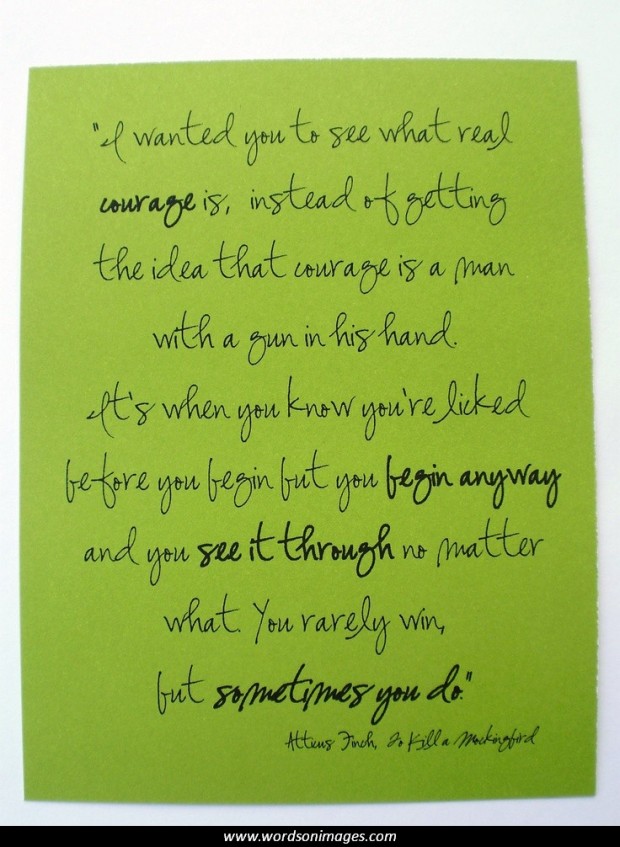 "I wanted you to see what real
courage is, instead of getting
the idea that courage is a man
with a gun in his hand.
It's when you know you're licked
before you begin but you begin anyway
and you see it through no matter
what. You rarely win,
but sometimes you do."
Atticus Finch, To Kill a Mockingbird
www.wordsonimages.com